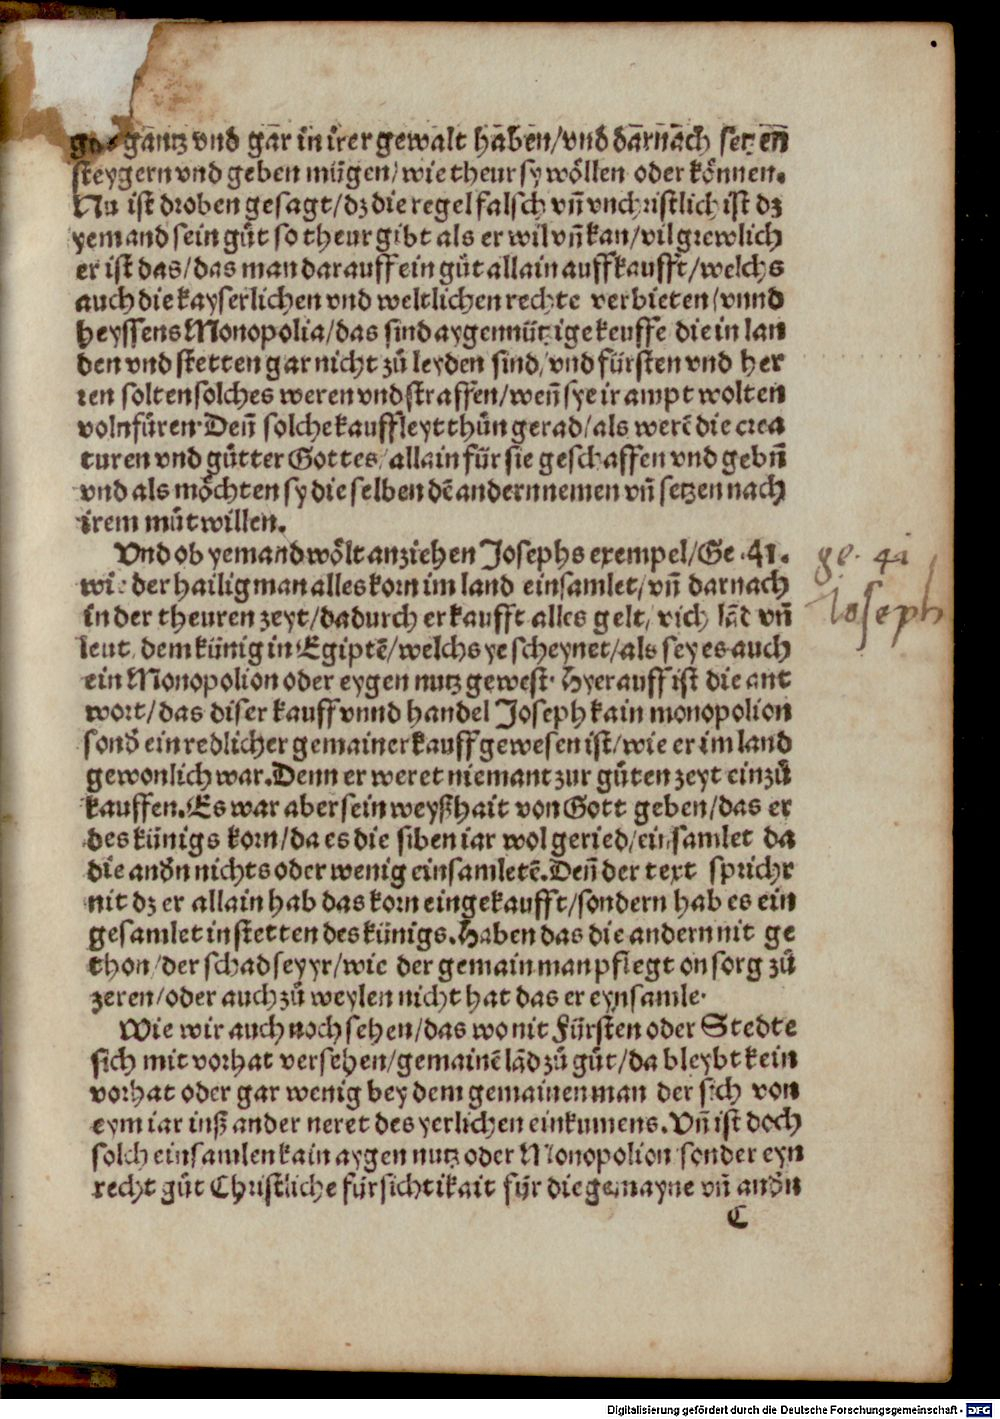 gantz vnd gar in irer gewalt haben/vnd darnach setzen
steygern vnd geben mügen/wie theur sy wöllen oder können.
Nu ist droben gesagt/dz die regel falsch vñ vnchristlich ist dz
yemand sein gůt so theur gibt als er wil vñ kan/vil grewlich
er ist das/das man darauff ein gůt allain auffkaufft/welchs
auch die kayserlichen vnd weltlichen rechte verbieten/vnnd
heyssens Monopolia/das sind aygennützige keuffe die in lan
den vnd stetten gar nicht zů leyden sind/vnd fürsten vnd her
ren solten solches weren vnd straffen/weñ sye ir ampt wolten
volnfüren. Deñ solche kauffleyt thůn gerad/als werẽ die crea
turen vnd gütter Gottes/allain für sie geschaffen vnd gebñ
vnd als möchten sy die selben dẽ andern nemen vñ setzen nach
irem můtwillen.
Vnd ob yemand wölt anziehen Josephs exempel/Ge.41.
wie der hailig man alles korn im land einsamlet/vñ darnach
in der theuren zeyt/dadurch er kaufft alles gelt/vich lãd vñ
leut/dem künig in Egiptẽ/welchs ye scheynet/als sey es auch
ein Monopolion oder eygen nutz gewest. Hyerauff ist die ant
wort/das diser kauff vnnd handel Joseph kain monopolion
sond̃ ein redlicher gemainer kauff gewesen ist/wie er im land
gewonlich war. Denn er weret niemant zur gůten zeyt einzů
kauffen. Es war aber sein weyßhait von Gott geben/das er
des künigs korn/da es die siben iar wol geried/einsamlet da
die and̃n nichts oder wenig einsamletẽ. Deñ der text sprichr
nit dz er allain hab das korn eingekaufft/sondern hab es ein
gesamlet in stetten des künigs. Haben das die andern nit ge
thon/der schad sey yr/wie der gemain man pflegt on sorg zů
zeren/oder auch zů weylen nicht hat das er eynsamle.
Wie wir auch noch sehen/das wo nit Fürsten oder Stedte
sich mit vorhat versehen/gemainẽ lãd zů gůt/da bleybt kein
vorhat oder gar wenig bey dem gemainen man der sich von
eym iar inß ander neret des yerlichen einkumens. Vñ ist doch
solch einsamlen kain aygen nutz oder Monopolion sonder eyn
recht gůt Christliche fürsichtikait für die gemayne vñ and̃n
C
ge. 41
Ioseph
Digitalisierung gefördert durch die Deutsche Forschungsgemeinschaft - DFG